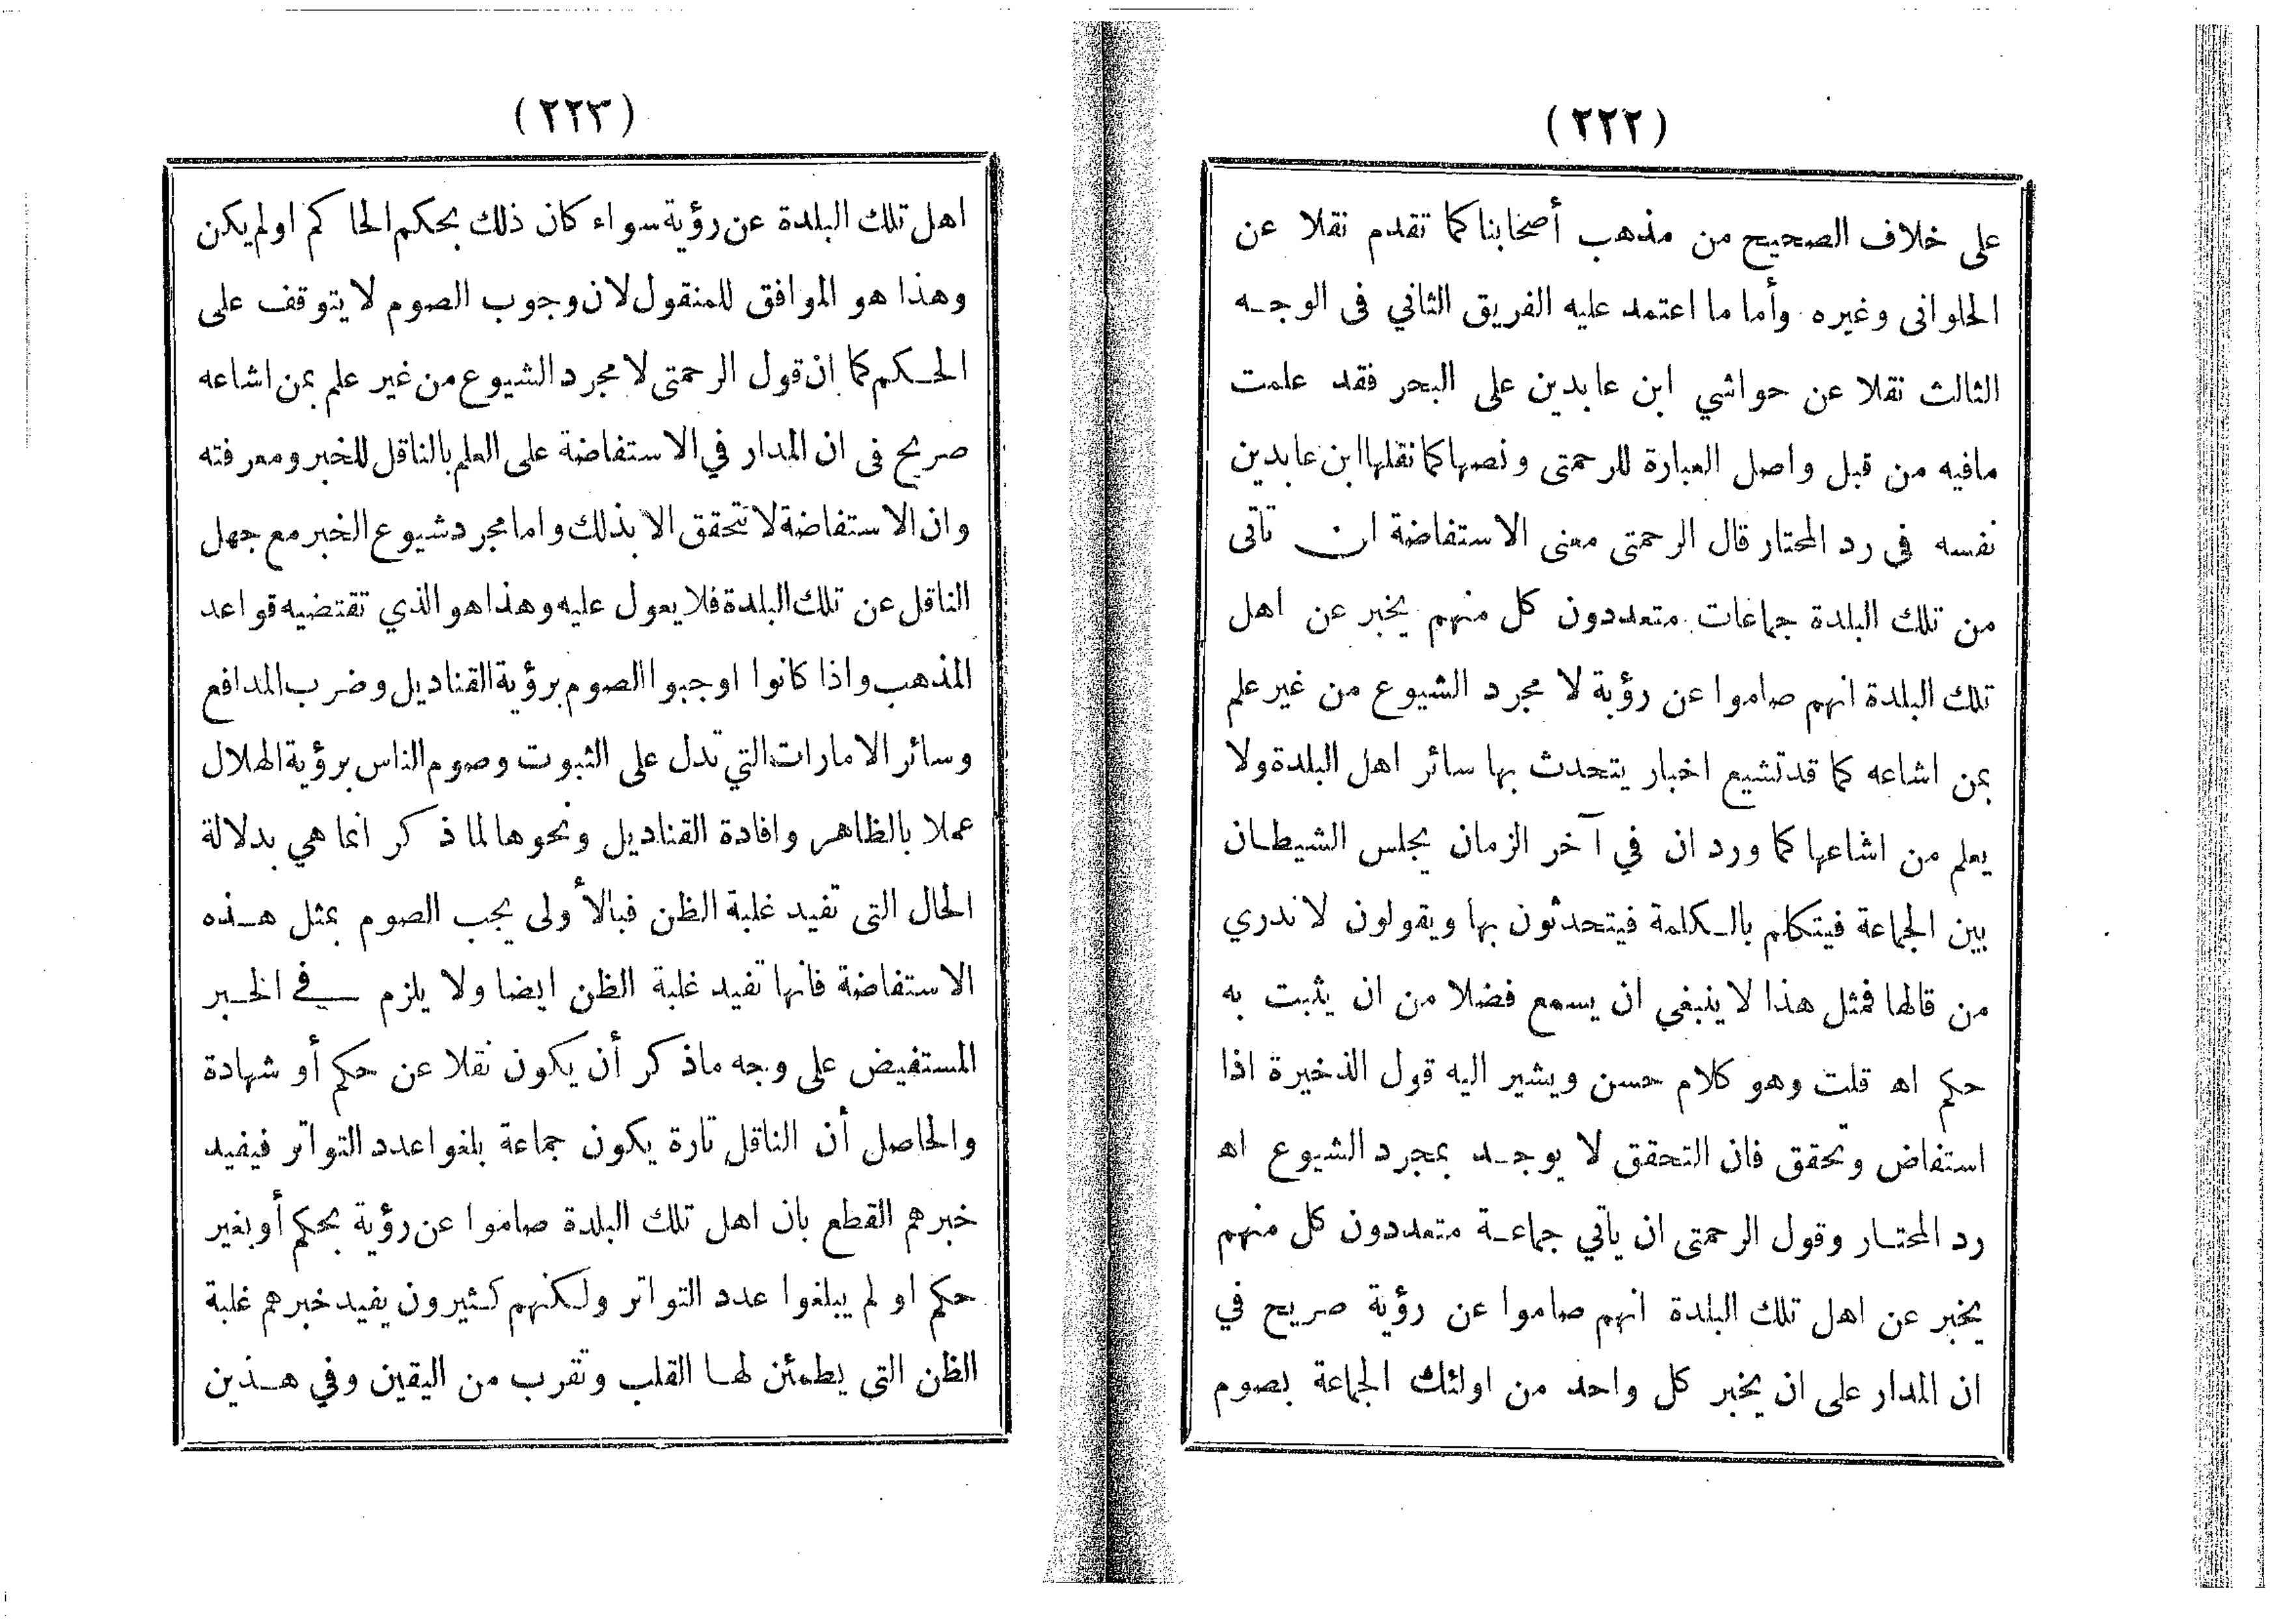 (٢٢٢)
على خلاف الصحيح من مذهب أصحابنا كما تقدم نقلا عن
الحلوانى وغيره وأما ما اعتمد عليه الفريق الثاني فى الوجه
الثالث نقلا عن حواشي ابن عابدين على البحر فقد علمت
مافيه من قبل واصل العبارة للرحمتى ونصها كما نقلها ابن عابدين
نفسه فى رد المحتار قال الرحمتى معنى الاستفاضة ان تاتى
من تلك البلدة جماعات متعددون كل منهم يخبر عن اهل
تلك البلدة انهم صاموا عن رؤية لا مجرد الشيوع من غير علم
بمن اشاعه كما قد تشيع اخبار يتحدث بها سائر اهل البلدة ولا
يعلم من اشاعها كما ورد ان في آخر الزمان يجلس الشيطان
بين الجماعة فيتكلم بالكلمة فيتحدثون بها ويقولون لا ندري
من قالها فمثل هذا لا ينبغي ان يسمع فضلا من ان يثبت به
حكم اه قلت وهو كلام حسن ويشير اليه قول الذخيرة اذا
استفاض وتحقق فان التحقق لا يوجد بمجرد الشيوع اه
رد المحتار وقول الرحمتى ان يأتي جماعة متعددون كل منهم
يخبر عن اهل تلك البلدة انهم صاموا عن رؤية صريح في
ان المدار على ان يخبر كل واحد من اولئك الجماعة بصوم
(٢٢٣)
اهل تلك البلدة عن رؤية سواء كان ذلك بحكم الحاكم او لم يكن
وهذا هو الموافق للمنقول لان وجوب الصوم لا يتوقف على
الحكم كما ان قول الرحمتى لا مجرد الشيوع من غير علم بمن اشاعه
صريح فى ان المدار في الاستفاضة على العلم بالناقل للخبر ومعرفته
وان الاستفاضة لا تتحقق الا بذلك واما مجرد شيوع الخبر مع جهل
الناقل عن تلك البلدة فلا يعول عليه وهذا هو الذي تقتضيه قواعد
المذهب واذا كانوا اوجبوا الصوم برؤية القناديل وضرب المدافع
وسائر الامارات التي تدل على الثبوت وصوم الناس برؤية الهلال
عملا بالظاهر وافادة القناديل ونحوها لما ذكر انما هي بدلالة
الحال التى تفيد غلبة الظن فبالأولى يجب الصوم بمثل هذه
الاستفاضة فانها تفيد غلبة الظن ايضا ولا يلزم في الخبر
المستفيض على وجه ماذكر أن يكون نقلا عن حكم أو شهادة
والحاصل أن الناقل تارة يكون جماعة بلغوا عدد التواتر فيفيد
خبرهم القطع بان اهل تلك البلدة صاموا عن رؤية بحكم أو بغير
حكم او لم يبلغوا عدد التواتر ولكنهم كثيرون يفيد خبرهم غلبة
الظن التى يطمئن لها القلب وتقرب من اليقين وفي هذين